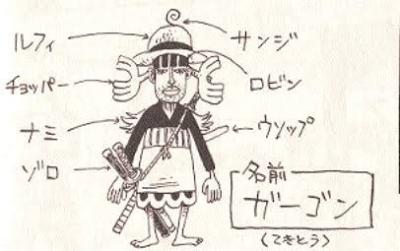 ルフィ
サンジ
チョッパー
ロビン
ナミ
ウソップ
ゾロ
名前
ガーゴン
(てきとう)